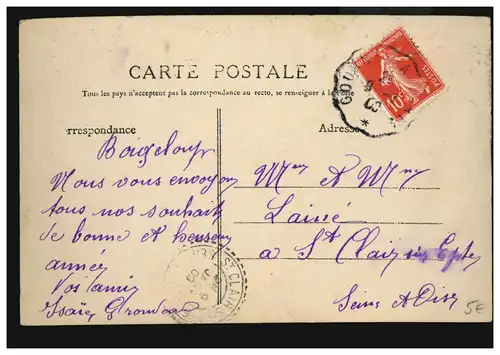 CARTE POSTALE
Tous les pays n'acceptent pas la correspondance au recto, se renseigner à la Poste
rrespondance
Adresse
Nous vous envoyon
tous nos souhait
de bonne et heureu
année
Vos amis
Isaïe
Mr et Mme
Lainé
a St Clair sur Epte
Seine et Oise
GOU
10c
POSTES
ST CLAIR
09
5€